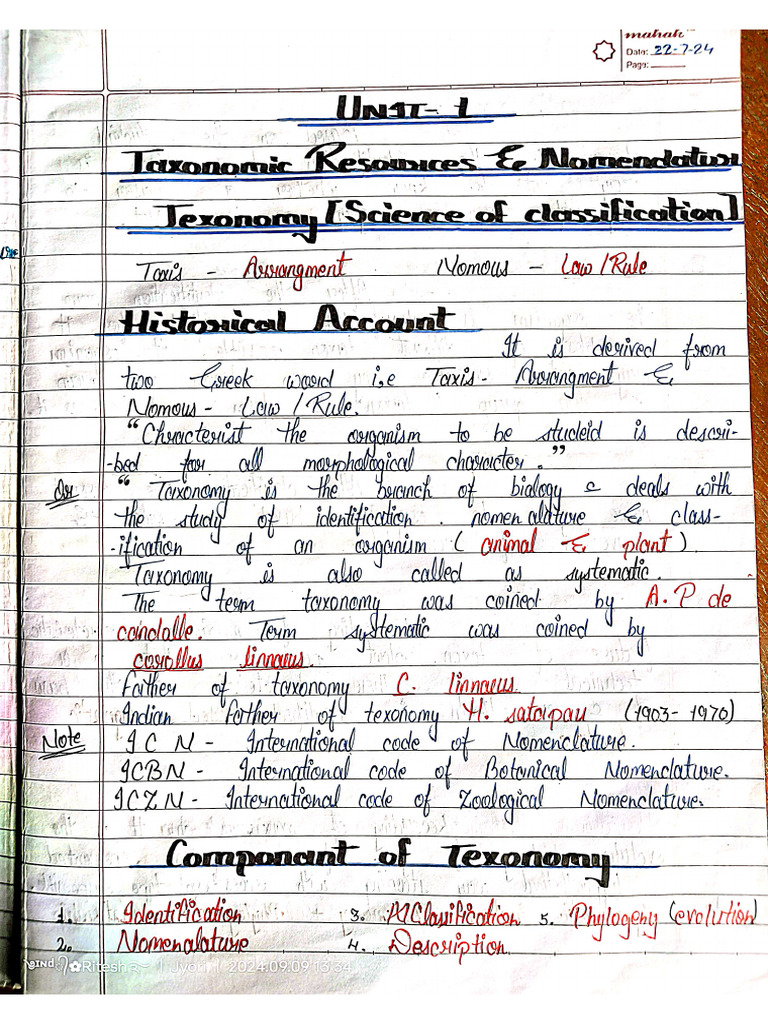 mahak
Date: 22-7-24
Page:
UNIT- 1
Taxonomic Resources & Nomenclature
Texonomy [Science of classification]
Taxis - Arrangment Nomous - Law/Rule
Historical Account
It is derived from
two Greek word i,e Taxis- Arrangment &
Nomous- Law/Rule.
"Chracterist the organism to be studeid is descri-
-bed for all morphological character."
Or " Taxonomy is the branch of biology c deals with
the study of identification. nomenclature & class-
-ification of an organism (animal & plant).
Taxonomy is also called as systematic.
The term taxonomy was coined by A.P de
candalle. Term systematic was coined by
carollus linnaeus.
Father of taxonomy C. linnaeus.
Indian father of texonomy H. satapau (1903-1970)
Note ICN- International code of Nomenclature.
ICBN- International code of Botanical Nomenclature.
ICZN- International code of Zoological Nomenclature.
Componant of Texonomy
1. Identification 3. Classification 5. Phylogeny (evolution)
2. Nomenalature 4. Description
Ritesh | Jyoti | 2024.09.09 13:54